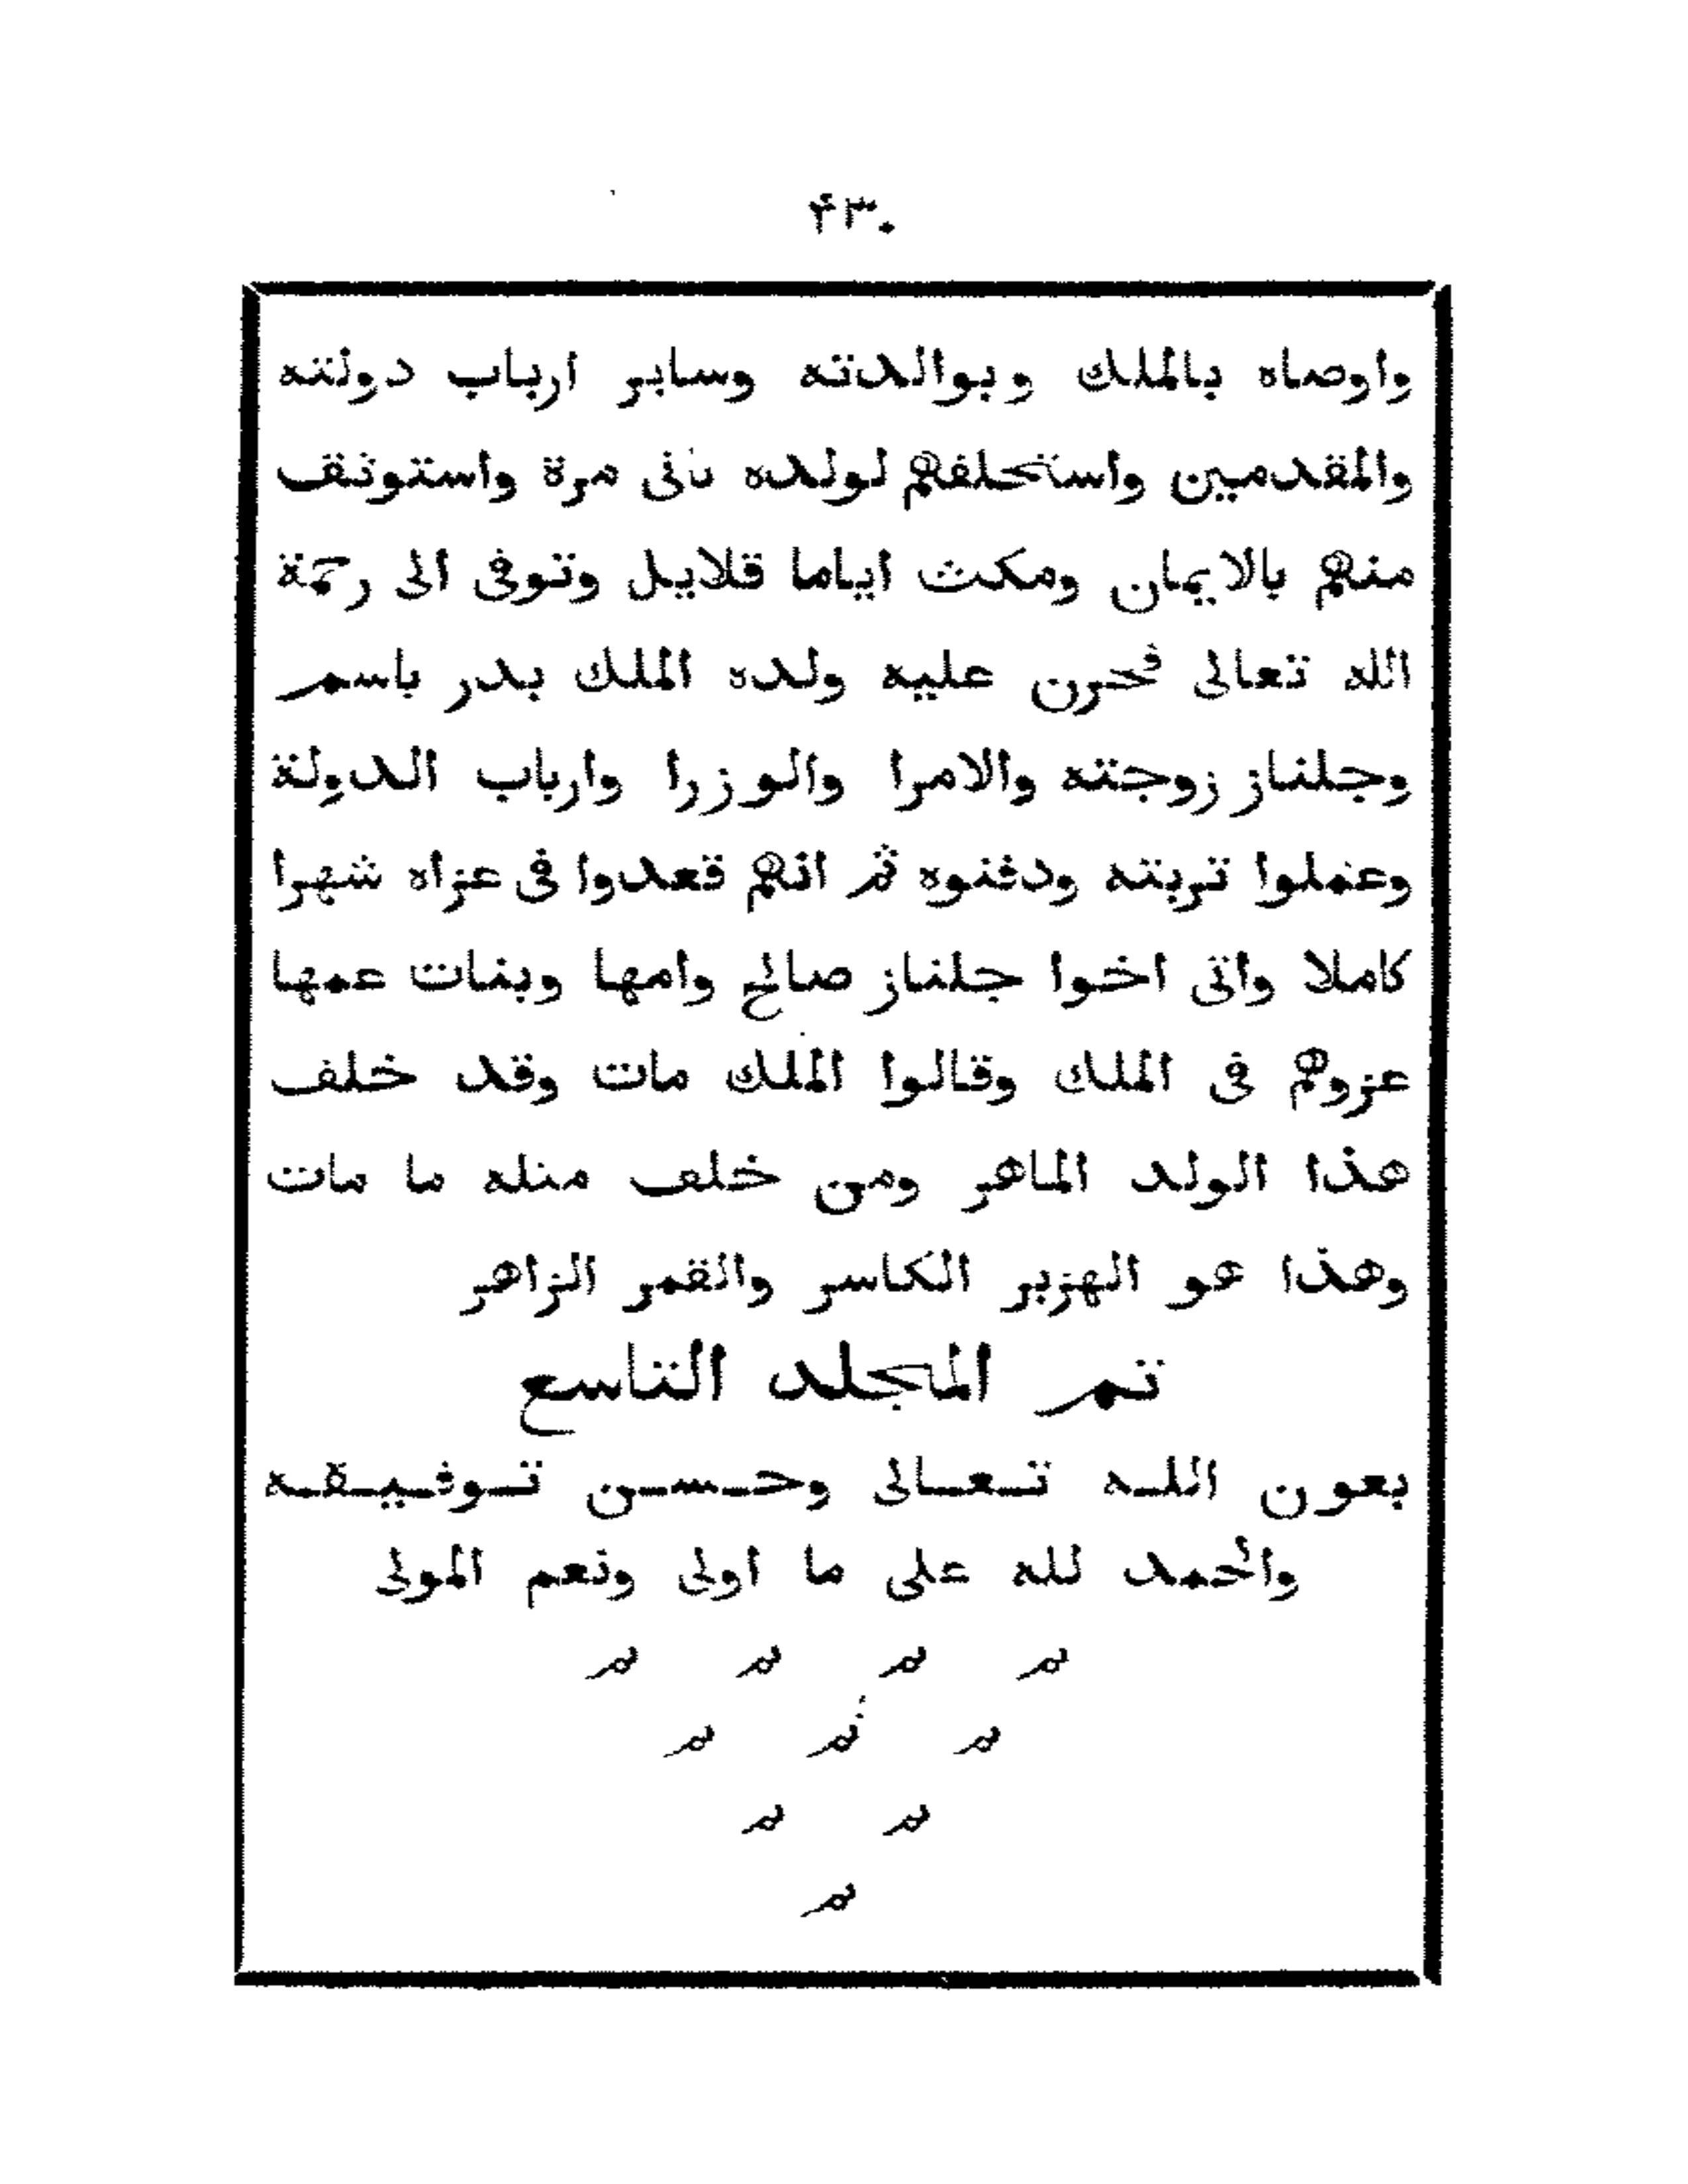 ۴۳۰
واوصاه بالملك وبوالدته وساير ارباب دولته
والمقدمين واستحلفهم لولده ثانى مرة واستوثق
منهم بالايمان ومكث اياما قلايل وتوفى الى رحمة
الله تعالى فحزن عليه ولده الملك بدر باسم
وجلناز زوجته والامرا والوزرا وارباب الدولة
وعملوا تربته ودفنوه ثم انهم قعدوا فى عزاه شهرا
كاملا واتى اخوا جلناز صالح وامها وبنات عمها
عزوهم فى الملك وقالوا الملك مات وقد خلف
هذا الولد الماهر ومن خلف مثله ما مات
وهذا هو الهزبر الكاسر والقمر الزاهر
تم المجلد التاسع
بعون الله تعالى وحسن توفيقه
والحمد لله على ما اولى ونعم المولى
تم تم تم تم
تم تم تم
تم تم
تم